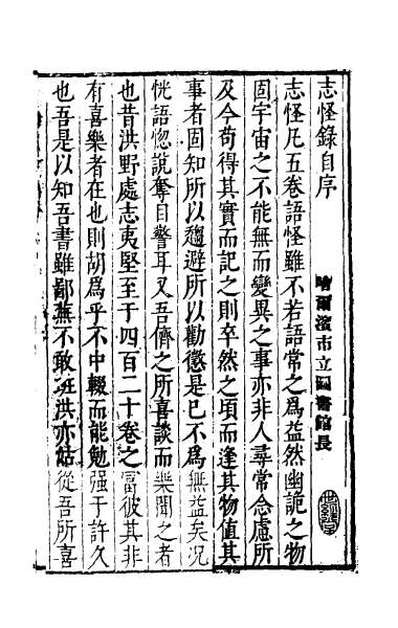 志怪錄自序
哈爾濱市立圖書館長
志怪凡五卷語怪雖不若語常之爲益然幽詭之物
固宇宙之不能無而變異之事亦非人尋常念慮所
及今苟得其實而記之則卒然之頃而逢其物值其
事者固知所以趨避所以勸懲是已不爲無益矣况
恍語惚說奪目警耳又吾儕之所喜談而樂聞之者
也昔洪野處志夷堅至于四百二十卷之富彼其非
有喜樂者在也則胡爲乎不中輟而能勉强于許久
也吾是以知吾書雖鄙蕪不敢班洪亦姑從吾所喜